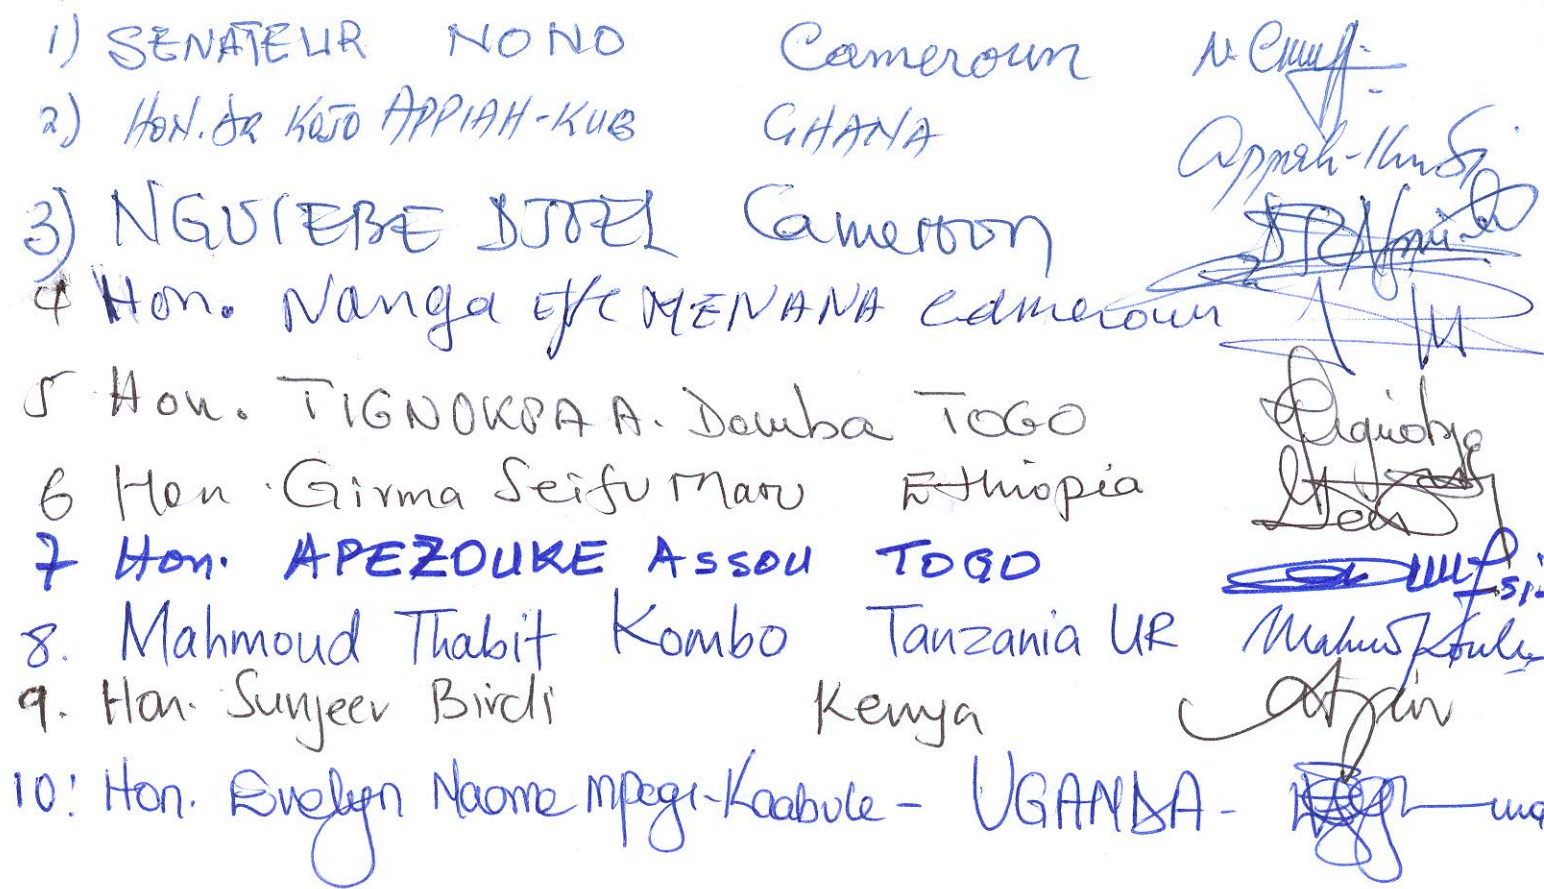 1) SENATEUR NONO Cameroun
2) HON. DR KOJO APPIAH-KUB GHANA Appiah-Kubi
3) NGUIEBE DJOEL Cameroon
4 Hon. Nanga MENANA Cameroun
5 Hon. TIGNOKPA A. Demba TOGO
6 Hon. Girma Seifu Maru Ethiopia
7 Hon. APEZOUKE Assou TOGO
8. Mahmoud Thabit Kombo Tanzania UR
9. Hon. Sunjeev Birdi Kenya
10: Hon. Evelyn Naome Mpagi-Kaabule - UGANDA -